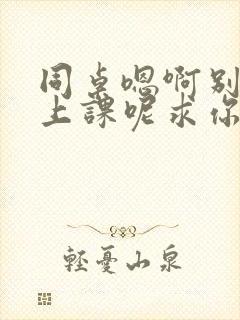 同桌嗯啊别
上課呢求你
輕憂山泉